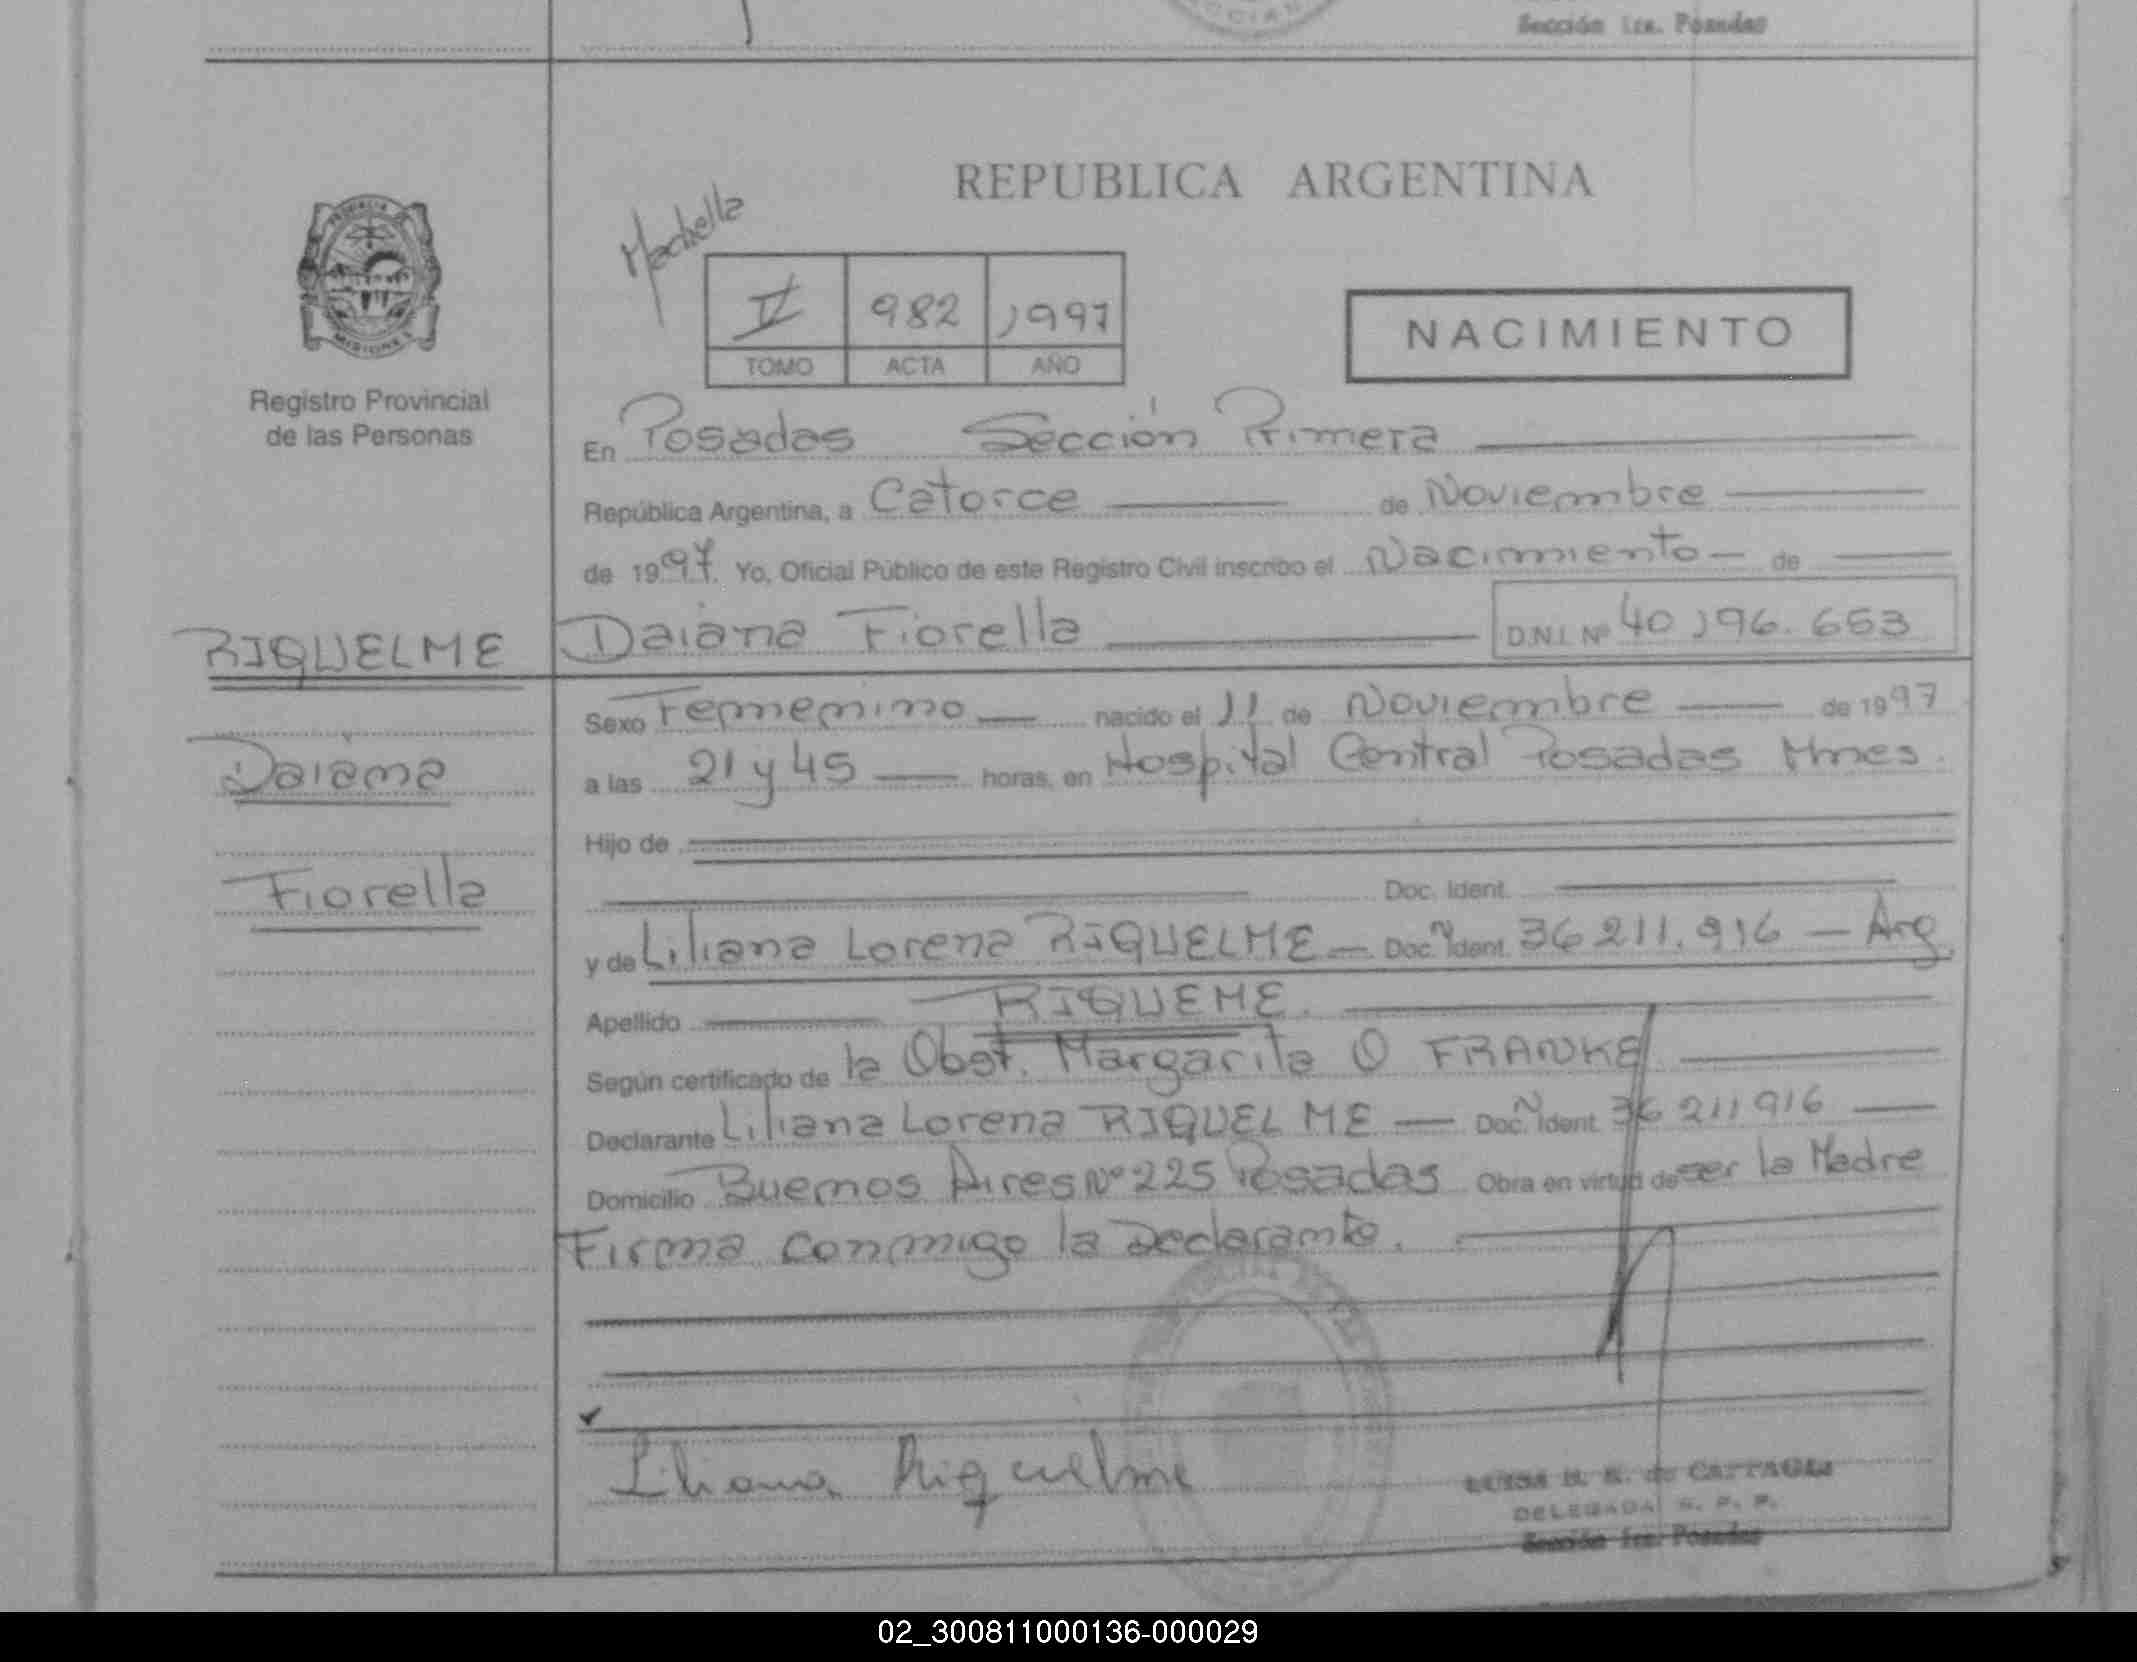 Sección 1ra. Posadas
REPUBLICA ARGENTINA
V 982 1997
TOMO ACTA AÑO
NACIMIENTO
Registro Provincial
de las Personas
En Posadas Sección Primera
República Argentina, a Catorce de Noviembre
de 1997. Yo, Oficial Público de este Registro Civil inscribo el Nacimiento de
RIQUELME Daiana Fiorella D.N.I. Nº 40 196.653
Sexo Femenino nacido el 11 de Noviembre de 1997
a las 21 y 45 horas, en Hospital Central Posadas Mnes.
Daiana
Hijo de
Fiorella
Doc. Ident.
y de Liliana Lorena RIQUELME Doc. Ident. 36 211.916 Arg
Apellido RIQUEME.
Según certificado de la Obst. Margarita O FRANKE
Declarante Liliana Lorena RIQUELME Doc. Ident. 36 211 916
Domicilio Buenos Aires Nº 225 Posadas Obra en virtud de ser la Madre
Firma conmigo la Declarante.
Liliana Riquelme
DELEGADA
Sección 1ra. Posadas
02_300811000136-000029